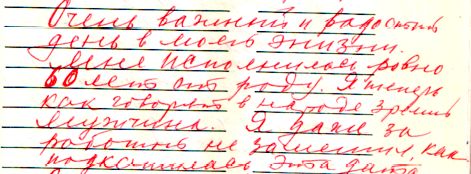 Очень важный и радостный
день в моей жизни.
Мне исполнилось ровно
60 лет от роду. Я теперь
как говорят в народе зрелый
мужчина. Я даже за
работой не заметил, как
подкатилась эта дата